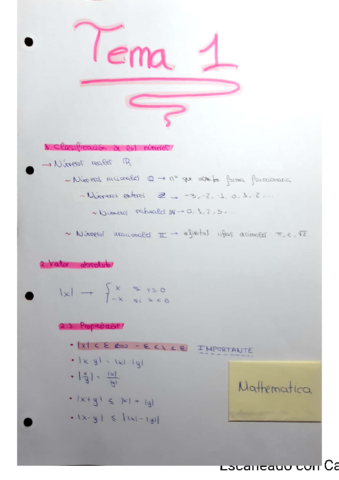 Tema 1
1. Clasificación de los números
→ Números reales ℝ
- Números racionales ℚ → nº que admite forma fraccionaria
- Números enteros ℤ → -3, -2, -1, 0, 1, 2...
~ Números naturales ℕ → 0, 1, 2, 3...
~ Números irracionales 𝕀 → infinitas cifras decimales π, e, √2
2. Valor absoluto
|x| → { x si x≥0
-x si x<0
2.1 Propiedades
IMPORTANTE
• |x·y| = |x|·|y|
• |x/y| = |x|/|y|
Mathematica
Escaneado con Ca